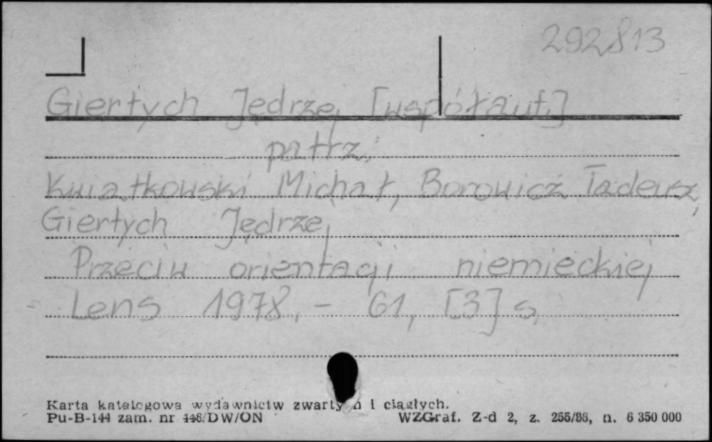 292813
Giertych Jędrzej [współaut.]
patrz:
Kwiatkowski Michał, Borowicz Tadeusz,
Giertych Jędrzej
Przeciw orientacji niemieckiej
Lens 1978. - 61, [3] s.
Karta katalogowa wydawnictw zwartych i ciągłych.
Pu-B-144 zam. nr 146/DW/ON WZGraf. Z-d 2, z. 255/86, n. 6 350 000